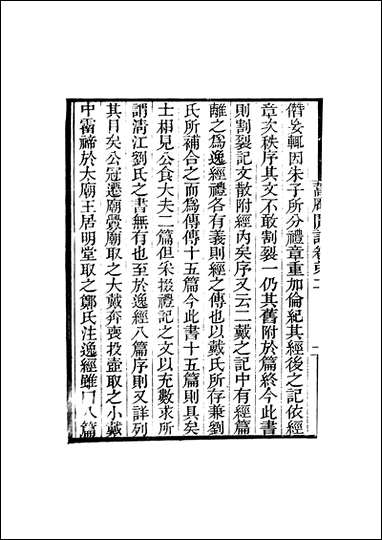 僭妄輒因朱子所分禮章重加倫紀其經後之記依經
章次秩序其文不敢割裂一仍其舊附於篇終今此書
則割裂記文散附經內矣序又云二戴之記中有經篇
離之爲逸經禮各有義則經之傳也以戴氏所存兼劉
氏所補合之而爲傳傳十五篇今此書十五篇則具矣
士相見公食大夫二篇但采掇禮記之文以充數求所
謂淸江劉氏之書無有也至於逸經八篇序則又詳列
其目矣公冠遷廟釁廟取之大戴奔喪投壺取之小戴
中霤禘於大廟王居明堂取之鄭氏注逸經雖曰八篇
蒿庵閒話卷第二
一